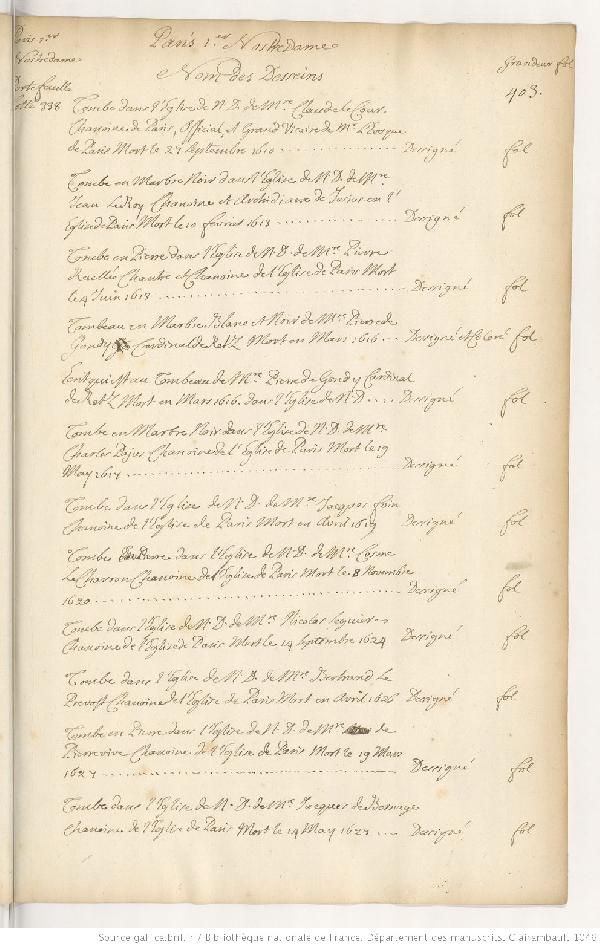 Paris 1.er
Nostredame
Portefeuille
338
Paris 1.er Nostredame
Nom des Desseins
Grandeur fol
403.
Tombe dans l'Eglise de N. D. de M.re Claude le Cour.
Chanoine de Paris, Official et Grand Vicaire de M.r l'Evesque
de Paris Mort le 27 Septembre 1610 Dessigné fol
Tombe en Marbre Noir dans l'Eglise de N. D. de M.re
Jean Le Roy Chanoine et Archidiacre de en l'
Eglise de Paris Mort le 10 fevrier 1613 Dessigné fol
Tombe en Pierre dans l'Eglise de N. D. de M.re Pierre
Ruellé Chantre et Chanoine de l'Eglise de Paris Mort
le 4 Juin 1613 Dessigné fol
Tombeau en Marbre Blanc et Noir de M.re Pierre de
Gondy Cardinal de Retz Mort en Mars 1616 Dessigné et Coloré fol
au Tombeau de M.re Pierre de Gondy Cardinal
de Retz Mort en Mars 1616. dans l'Eglise de N. D. Dessigné fol
Tombe en Marbre Noir dans l'Eglise de N. D. de M.re
Charles Chanoine de l'Eglise de Paris Mort le 19
May 1617 Dessigné fol
Tombe dans l'Eglise de N. D. de M.re Jacques
Chanoine de l'Eglise de Paris Mort en Avril 1619 Dessigné fol
Tombe en Pierre dans l'Eglise de N. D. de M.re Cosme
Le Charron Chanoine de l'Eglise de Paris Mort le 8 Novembre
1620 Dessigné fol
Tombe dans l'Eglise de N. D. de M.re Nicolas Seguier
Chanoine de l'Eglise de Paris Mort le 14 Septembre 1624 Dessigné fol
Tombe dans l'Eglise de N. D. de M.re Bertrand Le
Prevost Chanoine de l'Eglise de Paris Mort en Avril 1626 Dessigné fol
Tombe en Pierre dans l'Eglise de N. D. de M.re de
Pierrevive Chanoine de l'Eglise de Paris Mort le 19 Mars
1627 Dessigné fol
Tombe dans l'Eglise de N. D. de M.re Jacques de
Chanoine de l'Eglise de Paris Mort le 14 May 1627 Dessigné fol
Source gallica.bnf.fr / Bibliothèque nationale de France. Département des manuscrits. Clairambault 1046